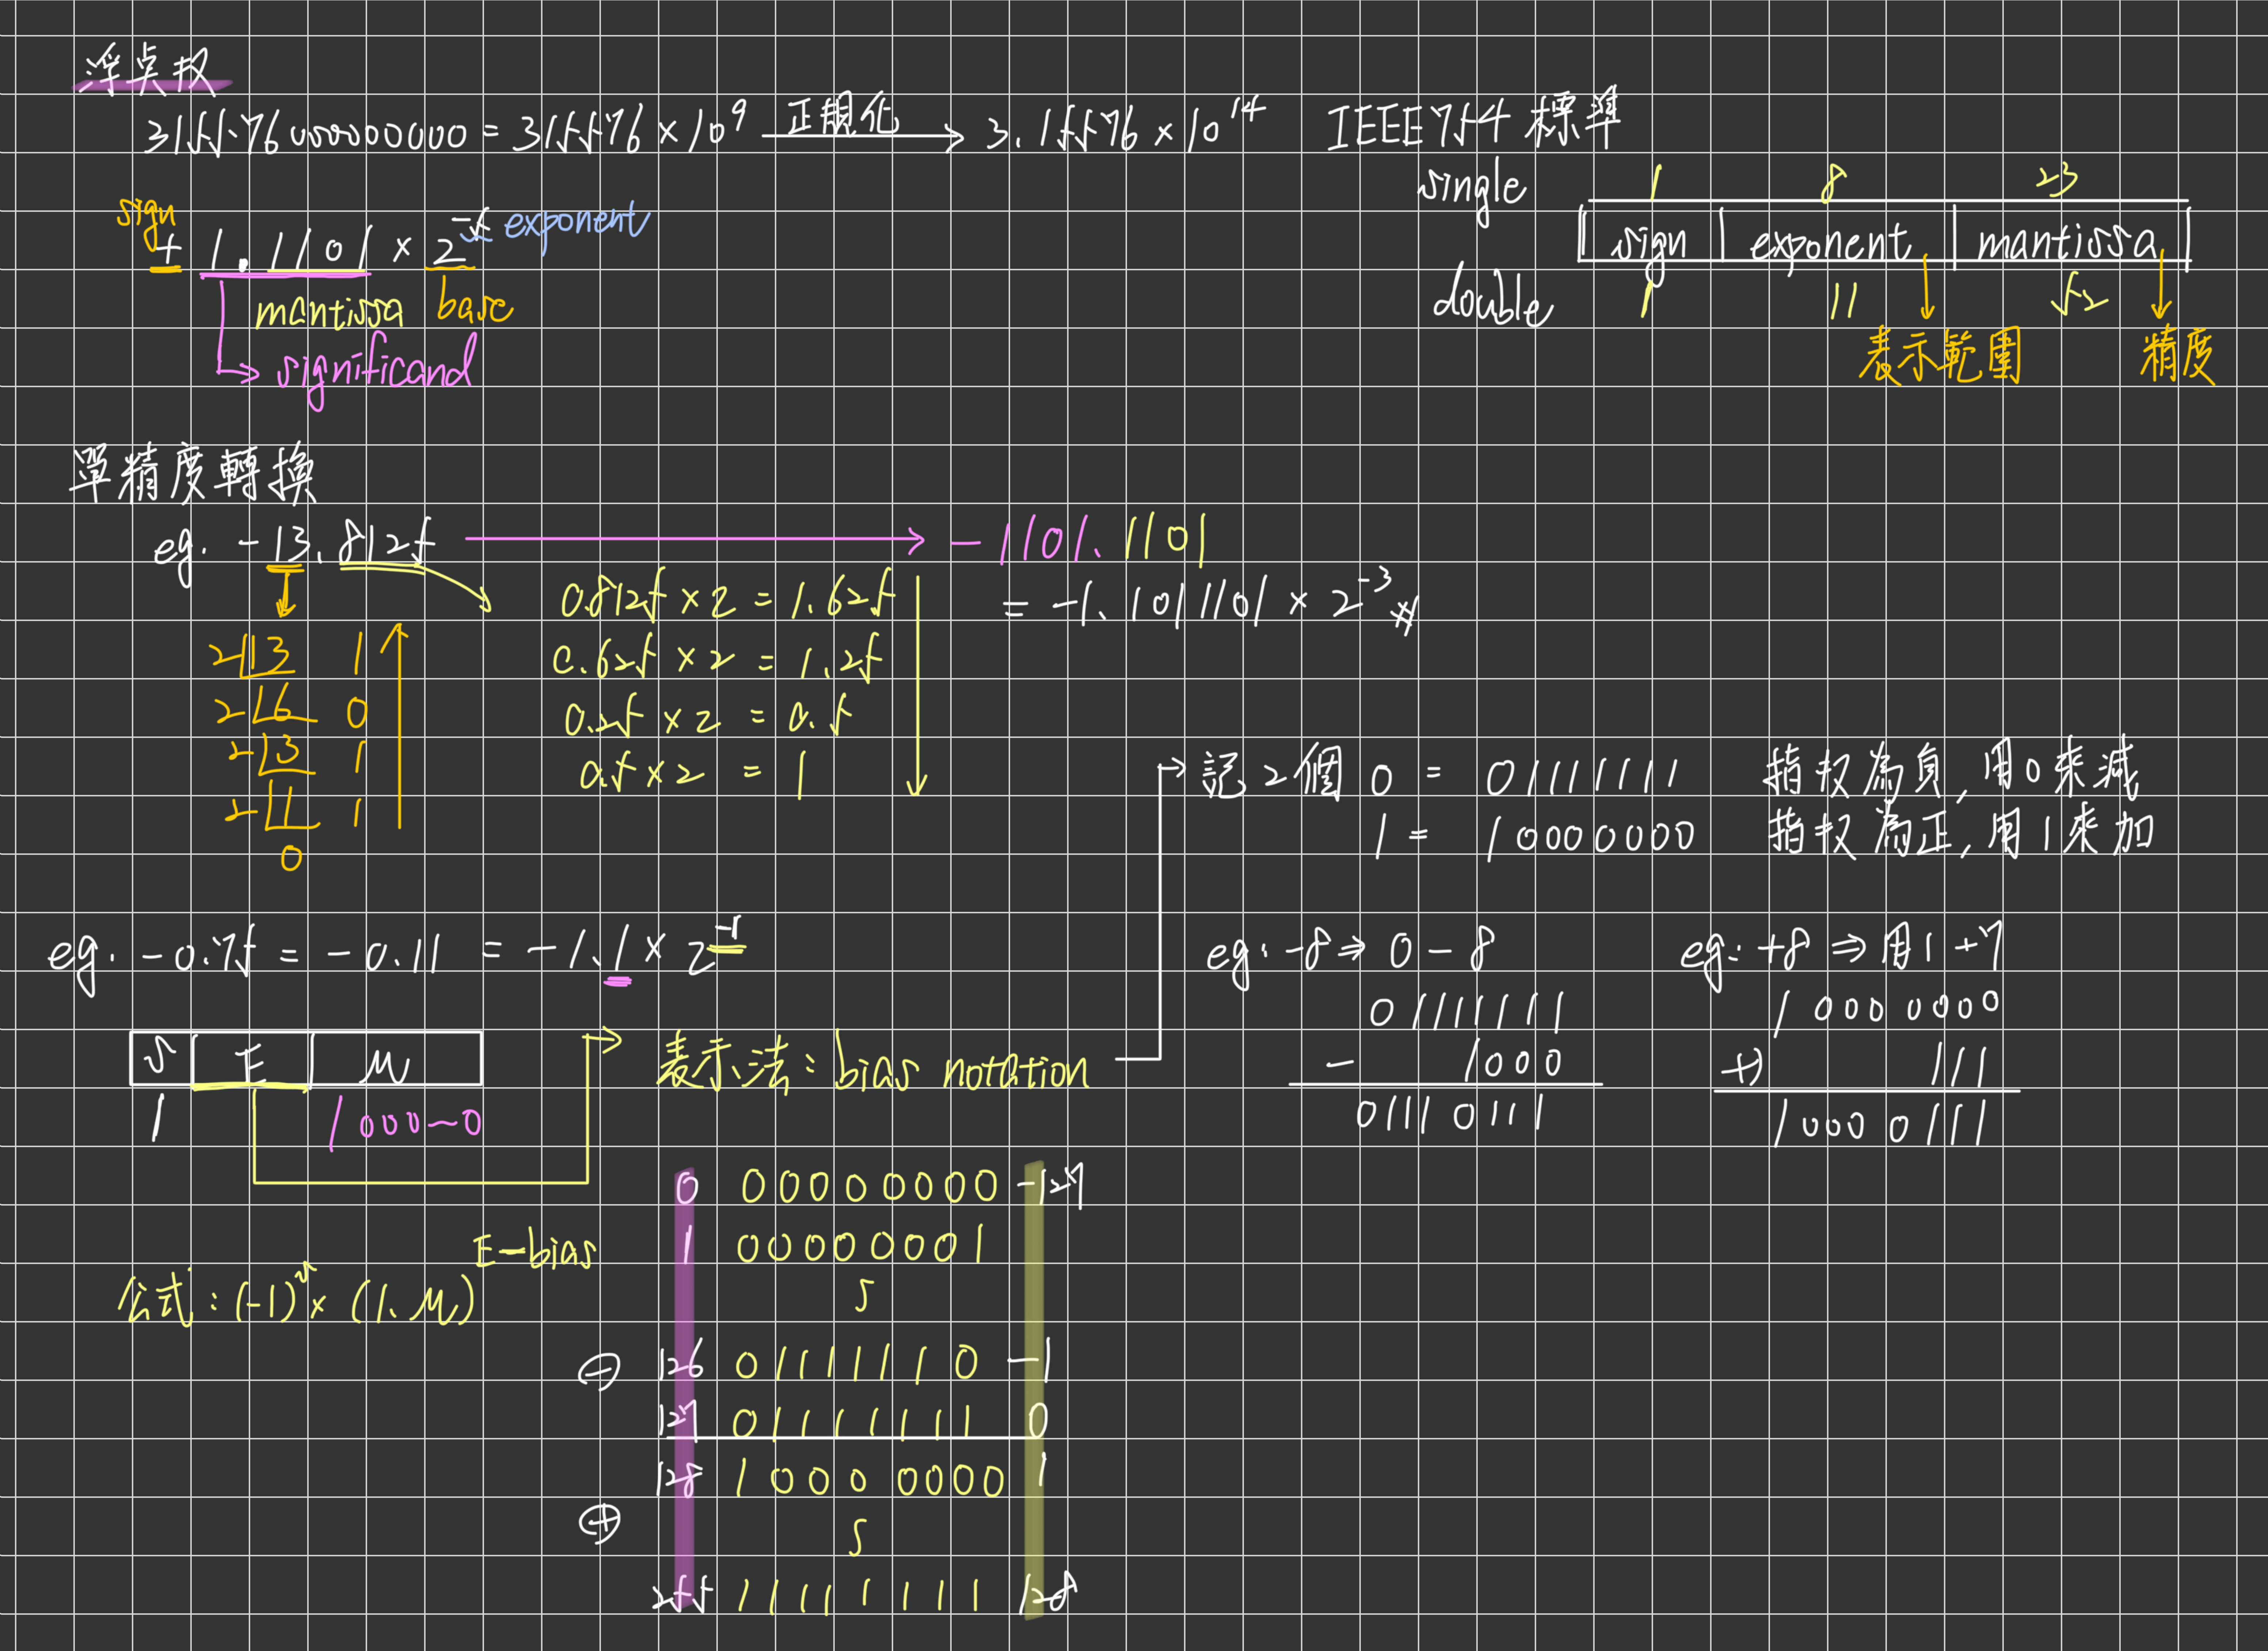 浮点数
315576000000000 = 315576 × 10⁹ 正規化 → 3.15576 × 10¹⁴
sign
+ 1.1101 × 2⁻⁵ exponent
mantissa base
→ significand
IEEE754 標準
single 1 8 23
sign exponent mantissa
double 1 11 52
表示範圍 精度
單精度轉換
eg. -13.8125 → -1101.1101
= -1.1011101 × 2⁻³
2 13 1
2 6 0
2 3 1
2 1 1
0
0.8125 × 2 = 1.625
0.625 × 2 = 1.25
0.25 × 2 = 0.5
0.5 × 2 = 1
eg. -0.75 = -0.11 = -1.1 × 2⁻¹
S E M
1 1000~0
表示法: bias notation
→ 記 2 個 0 = 01111111 指数為負, 用0來減
1 = 10000000 指数為正, 用1來加
eg: -8 ⇒ 0 - 8
01111111
- 1000
01110111
eg: +8 ⇒ 用1 +7
10000000
+) 111
10000111
公式: (-1)ˢ × (1.M) E-bias
0 00000000 -127
1 00000001
∫
⊖ 126 01111110 -1
127 01111111 0
128 10000000 1
⊕ ∫
255 11111111 128